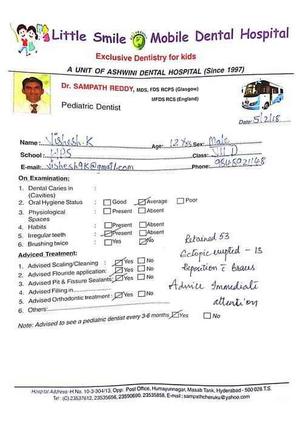 Little Smile Mobile Dental Hospital
Exclusive Dentistry for kids
A UNIT OF ASHWINI DENTAL HOSPITAL (Since 1997)
Dr. SAMPATH REDDY, MDS, FDS RCPS (Glasgow)
MFDS RCS (England)
Pediatric Dentist
Date: 5/2/18
Name: Vishesh.K Age: 12 Yrs Sex: Male
School: HPS Class: VII D
E-mail: vishesh9k@gmail.com Phone:
On Examination:
1. Dental Caries in :
(Cavities)
2. Oral Hygiene Status : Good Average Poor
3. Physiological : Present Absent
Spaces
4. Habits : Present Absent
5. Irregular teeth : Present Absent
6. Brushing twice : Yes No
Retained 53
Ectopic erupted - 13
Reposition c Braces
Advice Immediate
attention
Adviced Treatment:
1. Advised Scaling/Cleaning : Yes No
2. Advised Flouride application: Yes No
3. Advised Pit & Fissure Sealants: Yes No
4. Advised Filling in
5. Advised Orthodontic treatment : Yes No
6. Others:
Note: Advised to see a pediatric dentist every 3-6 months Yes No
Hospital Address: H.No. 10-3-304/13, Opp. Post Office, Humayunnagar, Masab Tank, Hyderabad - 500 028.T.S.
Tel: (C) 23537612, 23535656, 23590690, 23535858, E-mail: sampathcheruku@yahoo.com